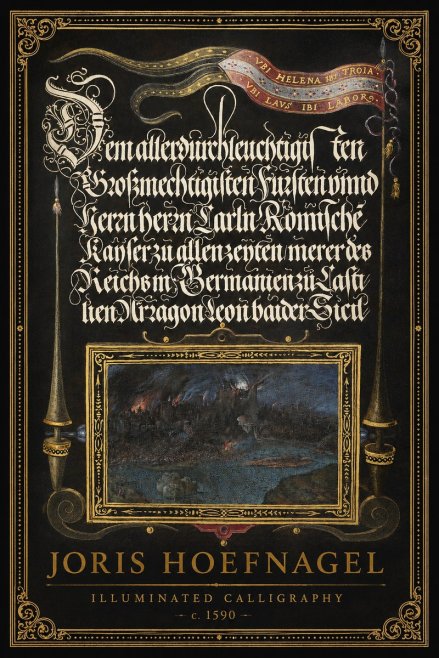 VBI HELENA IBI TROIA.
VBI LAVS IBI LABOR.
Dem allerdurchleuchtigisten
Großmechtigisten Fursten vnnd
Herrn herrn Carln Romischē
Kayser zu allen zeyten merer des
Reichs in Germanien zu Casti
lien Arragon Leon baider Sicil
JORIS HOEFNAGEL
ILLUMINATED CALLIGRAPHY
– c. 1590 –